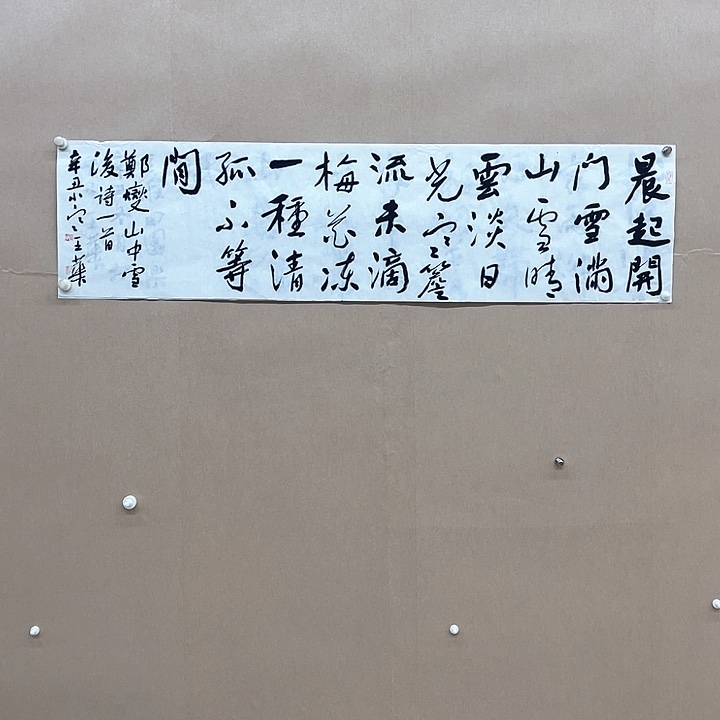 晨起開
门雪满
山雪晴
雲淡日
光寒簷
流未滴
梅花冻
一種清
孤不等
閒
鄭燮山中雪
後诗一首
辛丑小寒